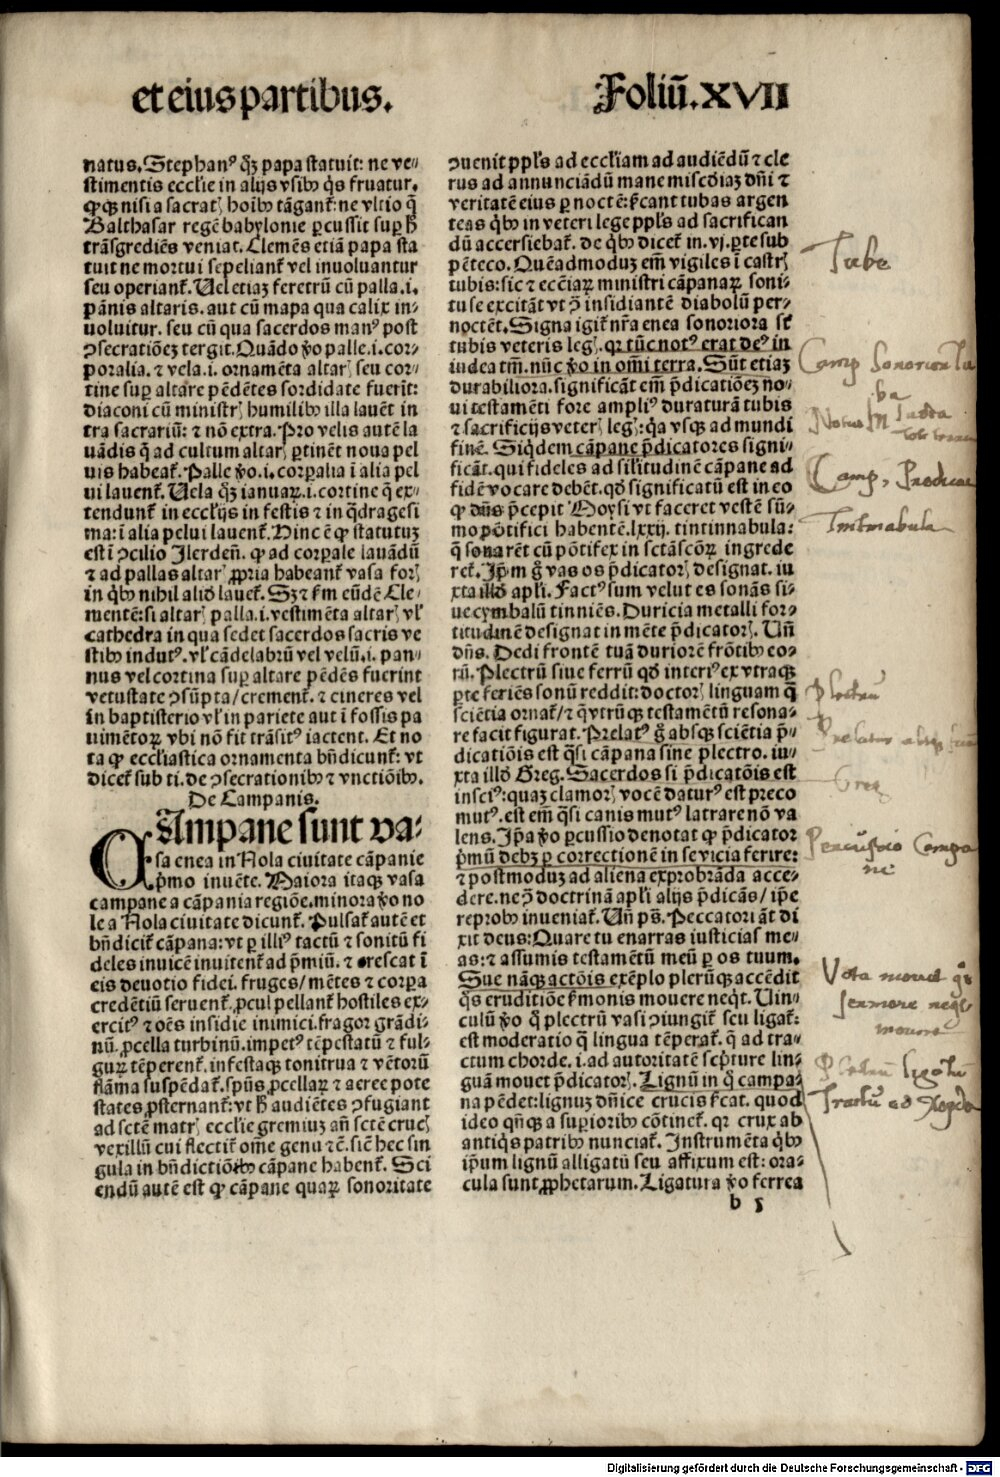 et eius partibus.
Foliū. XVII
natus. Stephanꝰ q̄ꝫ papa statuit: ne ve⸗
stimentis ecclie in alijs vsibꝰ q̄s fruatur.
ꝙ qꝫ nisi a sacrat̄ hoībꝰ tāgant̄: ne vltio q̄
Balthasar regē babylonie ꝑcussit suꝑ h̄
trāsgrediēs veniat. Clemēs etiā papa sta
tuit ne mortui sepeliant̄ vel inuoluantur
seu operiant̄. Uel etiaꝫ feretrū cū palla .i.
pānis altaris. aut cū mapa qua calix in⸗
uoluitur. seu cū qua sacerdos manꝰ post
ꝯsecratiōeꝫ tergit. Quādo ꝟo palle .i. cor⸗
poralia. ⁊ vela .i. ornamēta altar̄ seu cor⸗
tine suꝑ altare pēdētes sordidate fuerīt:
diaconi cū ministr̄ humilibꝰ illa lauēt in
tra sacrariū: ⁊ nō extra. Pro velis autē la
uādis q̄ ad cultum altar̄ ꝑtinēt noua pel
uis habeat̄. Palle ꝟo .i. corꝑalia ī alia pel
ui lauent̄. Uela q̄ꝫ ianuaꝝ .i. cortine q̄ ex⸗
tendunt̄ in ecclijs in festis ⁊ in q̄dragesi
ma: ī alia pelui lauent̄. Hinc ē ꝙ statutuꝫ
est ī ꝯcilio Ilerdeń. ꝙ ad corꝑale lauādū
⁊ ad pallas altar̄ ꝓpria habeant̄ vasa for̄
in q̄bꝰ nihil aliđ lauet̄. Sꝫ ⁊ ẜm eūdē Cle⸗
mentē: si altar̄ palla .i. vestimēta altar̄ vl̓
cathedra in qua sedet sacerdos sacris ve
stibꝰ indutꝰ. vl̓ cādelabrū vel velū .i. pan⸗
nus vel cortina suꝑ altare pēdēs fuerint
vetustate ꝯsūpta/ crement̄. ⁊ cineres vel
in baptisterio vl̓ in pariete aut ī fossis pa
uimētoꝝ vbi nō fit trāsitꝰ iactent̄. Et no
ta ꝙ eccliastica ornamenta bn̄dicunt̄: vt
dicet̄ sub ti. de ꝯsecrationibꝰ ⁊ vnctiōibꝰ.
De Campanis.
CAmpane sunt va⸗
sa enea in Nola ciuitate cāpanie
p̄mo inuēte. Maiora itaqꝫ vasa
campane a cāpania regiōe. minora ꝟo no
le a Nola ciuitate dicunt̄. Pulsat̄ autē et
bn̄dicit̄ cāpana: vt ꝑ illiꝰ tactū ⁊ sonitū fi
deles inuicē inuitent̄ ad p̄miū. ⁊ crescat ī
eis deuotio fidei. fruges/ mētes ⁊ corꝑa
credētiū seruent̄. ꝓcul pellant̄ hostiles ex⸗
ercitꝰ ⁊ oēs insidie inimici. fragor grādi⸗
nū. ꝓcella turbinū. impetꝰ tēpestatū ⁊ ful⸗
guꝝ tēperent̄. infestaqꝫ tonitrua ⁊ vētorū
flāma suspēdat̄. spūs ꝓcellaꝝ ⁊ aeree pote
states ꝓsternant̄: vt h̄ audiētes ꝯfugiant
ad sctē matr̄ ecclie gremiuꝫ añ sctē cruc̄
vexillū cui flectit̄ om̄e genu ⁊c̄. sic̄ hec sin
gula in bn̄dictiōibꝰ cāpane habent̄. Sci
endū autē est ꝙ cāpane quaꝝ sonoritate
ꝯuenit ppl̓s ad eccliam ad audiēdū ⁊ cle
rus ad annunciādū mane mis̄cđiaꝫ dn̄i ⁊
veritatē eius ꝑ noctē: ẜcant tubas argen
teas q̄bꝰ in veteri lege ppl̓s ad sacrifican
dū accersiebat̄. de q̄bꝰ dicet̄ in .vj. ꝑte sub
pēteco. Quēadmoduꝫ em̄ vigiles ī castr̄
tubis: sic ⁊ ecc̄iaꝝ ministri cāpanaꝝ soni⸗
tu se excitāt vt ꝯ̄ insidiantē diabolū per⸗
noctēt. Signa igit̄ nr̄a enea sonoriora st̄
tubis veteris leḡ. qꝛ tūc notꝰ erat deꝰ in
iudea tm̄. nūc ꝟo in om̄i terra. Sūt etiaꝫ
durabiliora. significāt em̄ p̄dicatiōeꝫ no⸗
ui testamēti fore ampliꝰ duraturā tubis
⁊ sacrificijs veter̄ leḡ: q̄a vsqꝫ ad mundi
finē. Siq̄dem cāpane p̄dicatores signi⸗
ficāt. qui fideles ad sil̓itudinē cāpane ad
fidē vocare debēt. qđ significatū est in eo
ꝙ dn̄s p̄cepit Moysi vt faceret vestē sūm⸗
mo pōtifici habentē .lxxij. tintinnabula:
q̄ sonarēt cū pōtifex in sctāscōꝝ ingrede
ret̄. Ip̄m g̊ vas os p̄dicator̄ designat. iu
xta illđ apl̓i. Factꝰ sum velut es sonās si⸗
ue cymbalū tinniēs. Duricia metalli for⸗
titudinē designat in mēte p̄dicator̄. Uñ
dn̄s. Dedi frontē tuā duriorē frōtibꝰ eo⸗
rū. Plectrū siue ferrū qđ interiꝰ ex vtraqꝫ
ꝑte feriēs sonū reddit: doctor̄ linguam q̄
sciētia ornat̄/ ⁊ q̄ vtrūqꝫ testamētū resona⸗
re facit figurat. Prelatꝰ g̊ absqꝫ sciētia p̄⸗
dicatiōis est q̄si cāpana sine plectro. iu⸗
xta illđ Greg. Sacerdos si p̄dicatōis est
insciꝰ: quaꝫ clamor̄ vocē daturꝰ est preco
mutꝰ. est em̄ q̄si canis mutꝰ latrare nō va
lens. Ip̄a ꝟo ꝑcussio denotat ꝙ p̄dicator
p̄mū debꝫ ꝑ correctionē in se vicia ferire:
⁊ postmoduꝫ ad aliena exprobrāda acce⸗
dere. ne ꝯ̄ doctrinā apl̓i alijs p̄dicās/ ip̄e
reprobꝰ inueniat̄. Uñ pš. Peccatori āt di
xit deus: Quare tu enarras iusticias me⸗
as: ⁊ assumis testamētū meū ꝑ os tuum.
Sue nāqꝫ actōis exēplo plerūqꝫ accēdit
q̄s eruditiōe ẜmonis mouere neq̄t. Uin⸗
culū ꝟo q̄ plectrū vasi ꝯiungit̄ seu ligat̄:
est moderatio q̄ lingua tēperat̄. q̄ ad tra⸗
ctum chorde .i. ad autoritatē scp̄ture lin⸗
guā mouet p̄dicator̄. Lignū in q̄ campa⸗
na pēdet: lignuꝫ dn̄ice crucis ẜcat. quod
ideo qn̄qꝫ a suꝑioribꝰ cōtinet̄. qꝛ crux ab
antiq̄s patribꝰ nunciat̄. Instrumēta q̄bꝰ
ip̄um lignū alligatū seu affixum est: ora⸗
cula sunt ꝓphetarum. Ligatura ꝟo ferrea
b 5
Tube
Tintinabula
Plectrū
Greg
Percussio Campa
ne
sermone
mouere
Digitalisierung gefördert durch die Deutsche Forschungsgemeinschaft - DFG